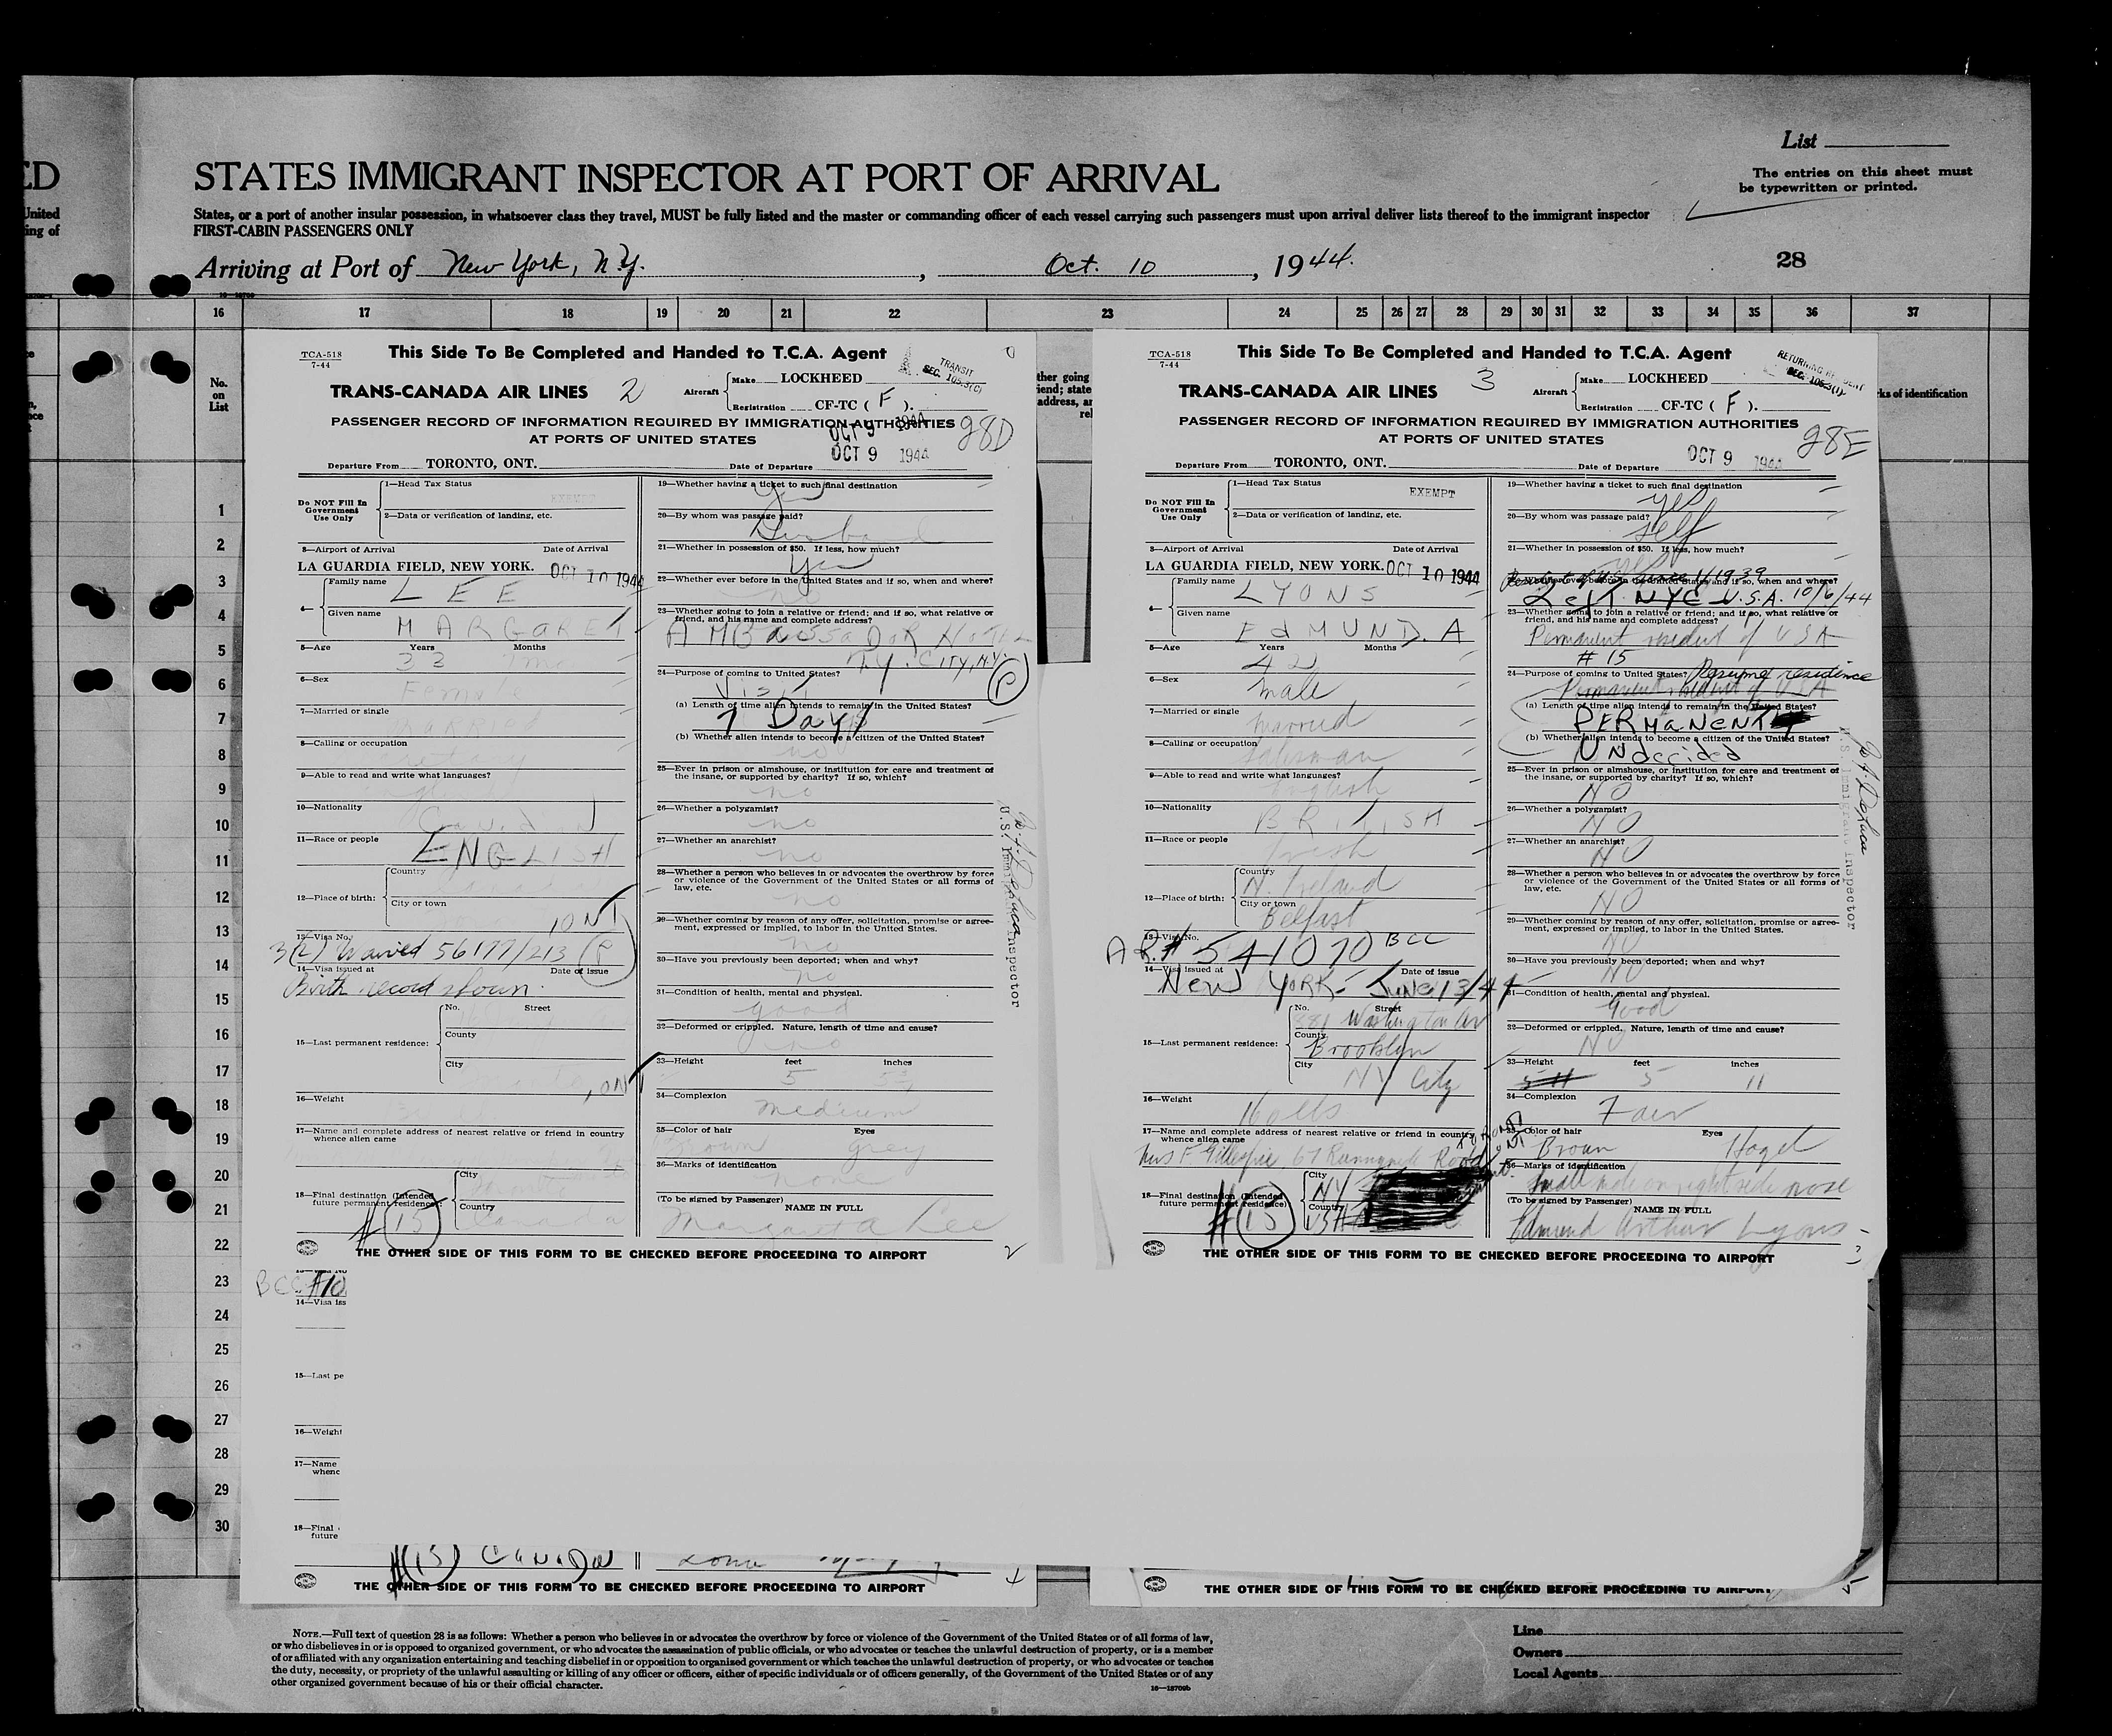 ED
United
ing of
List
The entries on this sheet must
be typewritten or printed.
STATES IMMIGRANT INSPECTOR AT PORT OF ARRIVAL
States, or a port of another insular possession, in whatsoever class they travel, MUST be fully listed and the master or commanding officer of each vessel carrying such passengers must upon arrival deliver lists thereof to the immigrant inspector
FIRST-CABIN PASSENGERS ONLY
Arriving at Port of New York, N.Y. , Oct. 10 , 1944.
28
16 17 18 19 20 21 22 23 24 25 26 27 28 29 30 31 32 33 34 35 36 37
No.
on
List
ther going
iend; state
address, an
rel
ks of identification
1
2
3
4
5
6
7
8
9
10
11
12
13
14
15
16
17
18
19
20
21
22
23
24
25
26
27
28
29
30
TCA-518
7-44
This Side To Be Completed and Handed to T.C.A. Agent
TRANSIT
SEC. 105.3(C)
TRANS-CANADA AIR LINES 2
Aircraft Make LOCKHEED
Registration CF-TC ( F ).
PASSENGER RECORD OF INFORMATION REQUIRED BY IMMIGRATION AUTHORITIES
AT PORTS OF UNITED STATES
28D
OCT 9 1944
OCT 9 1944
Departure From TORONTO, ONT. Date of Departure
Do NOT Fill In
Government
Use Only
1—Head Tax Status
EXEMPT
2—Data or verification of landing, etc.
3—Airport of Arrival Date of Arrival
LA GUARDIA FIELD, NEW YORK. OCT 10 1944
4— Family name
LEE
Given name
MARGARET
5—Age Years Months
33
6—Sex
Female
7—Married or single
8—Calling or occupation
9—Able to read and write what languages?
10—Nationality
11—Race or people
ENGLISH
12—Place of birth: Country
City or town
ONT
13—Visa No.
3(2) Waived 56177/213 (P)
14—Visa issued at Date of issue
Birth record shown.
15—Last permanent residence: No. Street
County
City
, ONT
16—Weight
17—Name and complete address of nearest relative or friend in country
whence alien came
18—Final destination (Intended
future permanent residence): City
Country
Canada
#(15)
19—Whether having a ticket to such final destination
Yes
20—By whom was passage paid?
Husband
21—Whether in possession of $50. If less, how much?
Yes
22—Whether ever before in the United States and if so, when and where?
no
23—Whether going to join a relative or friend; and if so, what relative or
friend, and his name and complete address?
AMBASSADOR HOTEL
N.Y. CITY, N.Y.
24—Purpose of coming to United States?
Visit (P)
(a) Length of time alien intends to remain in the United States?
7 Days
(b) Whether alien intends to become a citizen of the United States?
no
25—Ever in prison or almshouse, or institution for care and treatment of
the insane, or supported by charity? If so, which?
no
26—Whether a polygamist?
no
27—Whether an anarchist?
no
28—Whether a person who believes in or advocates the overthrow by force
or violence of the Government of the United States or all forms of
law, etc.
no
29—Whether coming by reason of any offer, solicitation, promise or agree-
ment, expressed or implied, to labor in the United States.
no
30—Have you previously been deported; when and why?
no
31—Condition of health, mental and physical.
good
32—Deformed or crippled. Nature, length of time and cause?
no
33—Height feet inches
5
34—Complexion
medium
35—Color of hair Eyes
Brown grey
36—Marks of identification
none
(To be signed by Passenger) NAME IN FULL
Margaret A Lee
U.S. Immigrant Inspector
THE OTHER SIDE OF THIS FORM TO BE CHECKED BEFORE PROCEEDING TO AIRPORT
2
TCA-518
7-44
This Side To Be Completed and Handed to T.C.A. Agent
RETURNING RESIDENT
SEC. 105.3(1)
TRANS-CANADA AIR LINES 3
Aircraft Make LOCKHEED
Registration CF-TC ( F ).
PASSENGER RECORD OF INFORMATION REQUIRED BY IMMIGRATION AUTHORITIES
AT PORTS OF UNITED STATES
28E
OCT 9 1944
Departure From TORONTO, ONT. Date of Departure
Do NOT Fill In
Government
Use Only
1—Head Tax Status
EXEMPT
2—Data or verification of landing, etc.
3—Airport of Arrival Date of Arrival
LA GUARDIA FIELD, NEW YORK. OCT 10 1944
4— Family name
LYONS
Given name
EdMUND. A
5—Age Years Months
42
6—Sex
male
7—Married or single
Married
8—Calling or occupation
Salesman
9—Able to read and write what languages?
English
10—Nationality
BRITISH
11—Race or people
Irish
12—Place of birth: Country
N. Ireland
City or town
Belfast
13—Visa No.
A.R.# 541070 BCC
14—Visa issued at Date of issue
New YORK - JUNE 13/44
15—Last permanent residence: No. Street
Washington Av
County
Brooklyn
City
NY City
16—Weight
160 lbs
17—Name and complete address of nearest relative or friend in country
whence alien came
Mrs F Gillespie, 67 Runnymede Road
18—Final destination (Intended
future permanent residence): City
NY
Country
USA
#(15)
19—Whether having a ticket to such final destination
yes
20—By whom was passage paid?
self
21—Whether in possession of $50. If less, how much?
yes
22—Whether ever before in the United States and if so, when and where?
Left NYC U.S.A. 10/6/44
23—Whether going to join a relative or friend; and if so, what relative or
friend, and his name and complete address?
Permanent resident of USA
# 15
24—Purpose of coming to United States? Resume residence
Permanent resident of USA
(a) Length of time alien intends to remain in the United States?
PERMANENT
(b) Whether alien intends to become a citizen of the United States?
UNdecided
25—Ever in prison or almshouse, or institution for care and treatment of
the insane, or supported by charity? If so, which?
NO
26—Whether a polygamist?
NO
27—Whether an anarchist?
NO
28—Whether a person who believes in or advocates the overthrow by force
or violence of the Government of the United States or all forms of
law, etc.
NO
29—Whether coming by reason of any offer, solicitation, promise or agree-
ment, expressed or implied, to labor in the United States.
NO
30—Have you previously been deported; when and why?
NO
31—Condition of health, mental and physical.
Good
32—Deformed or crippled. Nature, length of time and cause?
NO
33—Height feet inches
5 11
34—Complexion
Fair
35—Color of hair Eyes
Brown Hazel
36—Marks of identification
Small mole on right side nose
(To be signed by Passenger) NAME IN FULL
Edmund Arthur Lyons
U.S. Immigrant Inspector
THE OTHER SIDE OF THIS FORM TO BE CHECKED BEFORE PROCEEDING TO AIRPORT
3
BCC #10
14—Visa iss
15—Last pe
16—Weight
17—Name
whenc
18—Final
future
#(15) CANADA
THE OTHER SIDE OF THIS FORM TO BE CHECKED BEFORE PROCEEDING TO AIRPORT
THE OTHER SIDE OF THIS FORM TO BE CHECKED BEFORE PROCEEDING TO AIRPORT
NOTE.—Full text of question 28 is as follows: Whether a person who believes in or advocates the overthrow by force or violence of the Government of the United States or of all forms of law,
or who disbelieves in or is opposed to organized government, or who advocates the assassination of public officials, or who advocates or teaches the unlawful destruction of property, or is a member
of or affiliated with any organization entertaining and teaching disbelief in or opposition to organized government or which teaches the unlawful destruction of property, or who advocates or teaches
the duty, necessity, or propriety of the unlawful assaulting or killing of any officer or officers, either of specific individuals or of officers generally, of the Government of the United States or of any
other organized government because of his or their official character.
16—18709b
Line
Owners
Local Agents